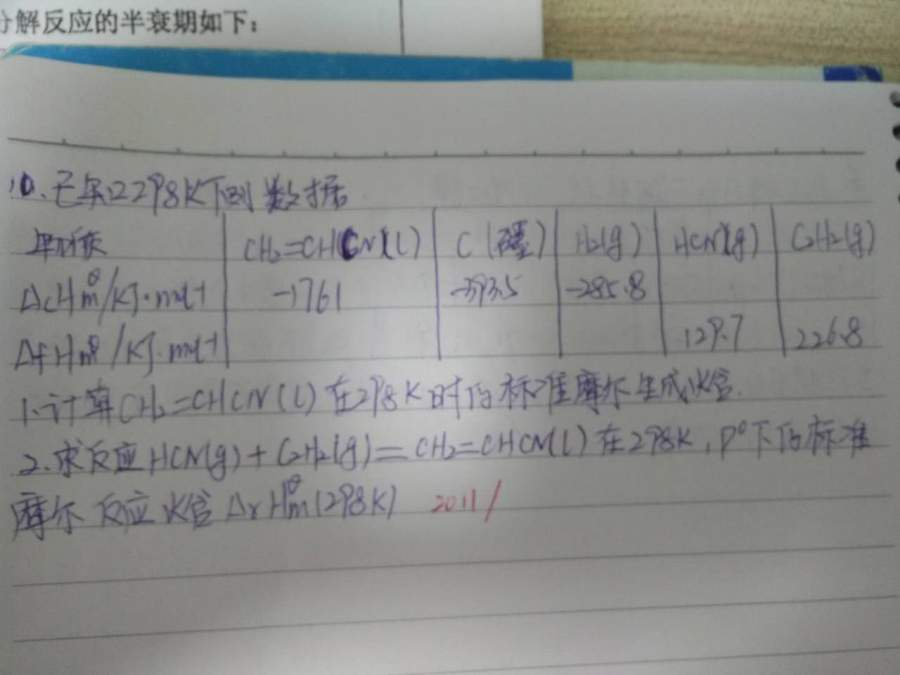 分解反应的半衰期如下：
10.已知298K下列数据
物质 CH₂=CHCN(l) C(石墨) H₂(g) HCN(g) C₂H₂(g)
ΔcHm^θ/KJ·mol-1 -1761 -393.5 -285.8
ΔfHm^θ/KJ·mol-1 129.7 226.8
1.计算CH₂=CHCN(l)在298K时的标准摩尔生成焓.
2.求反应HCN(g)+C₂H₂(g)=CH₂=CHCN(l)在298K,P^θ下的标准
摩尔反应焓ΔrHm^θ(298K) 2011/